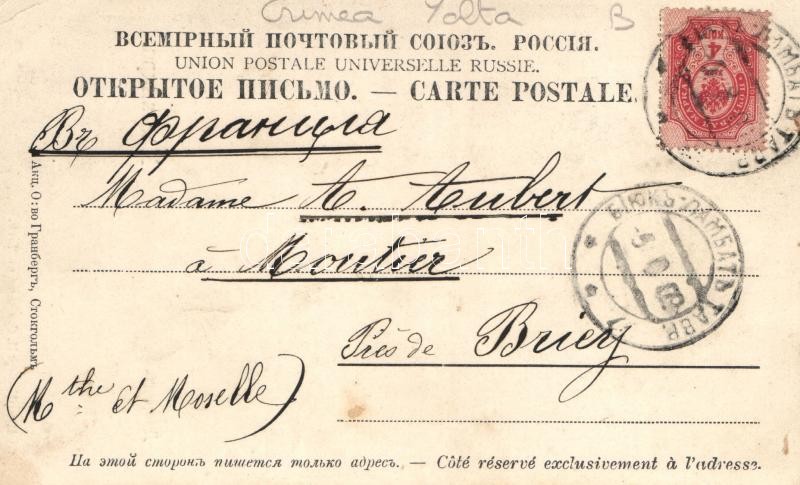 Crimea Yalta B
ВСЕМІРНЫЙ ПОЧТОВЫЙ СОЮЗЪ. РОССІЯ.
UNION POSTALE UNIVERSELLE RUSSIE.
ОТКРЫТОЕ ПИСЬМО. — CARTE POSTALE.
Въ Францiя
Madame A. Aubert
à Moutier
Près de Briey
(Mthe et Moselle)
Акц. О: во Гранбергъ, Стокгольмъ
БІЮКЪ-ЛАМБАТЪ ТАВР.
На этой сторонѣ пишется только адресъ. — Côté réservé exclusivement à l'adresse.